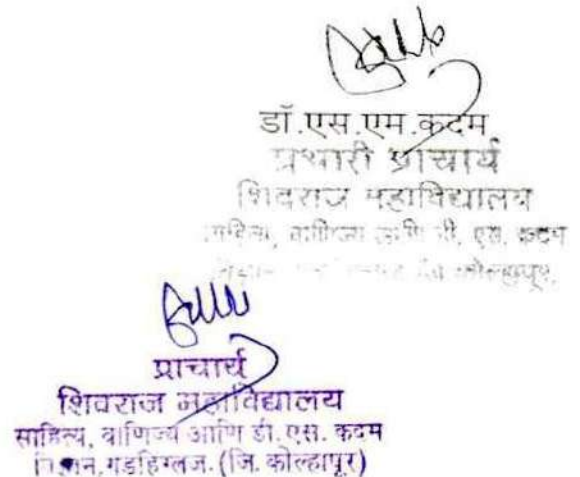 डॉ.एस.एम.कदम
प्रभारी प्राचार्य
शिवराज महाविद्यालय
वाणिज्य आणि डी. एस. कदम
कोल्हापूर.
प्राचार्य
शिवराज महाविद्यालय
साहित्य, वाणिज्य आणि डी. एस. कदम
विज्ञान, गडहिंग्लज. (जि. कोल्हापूर)